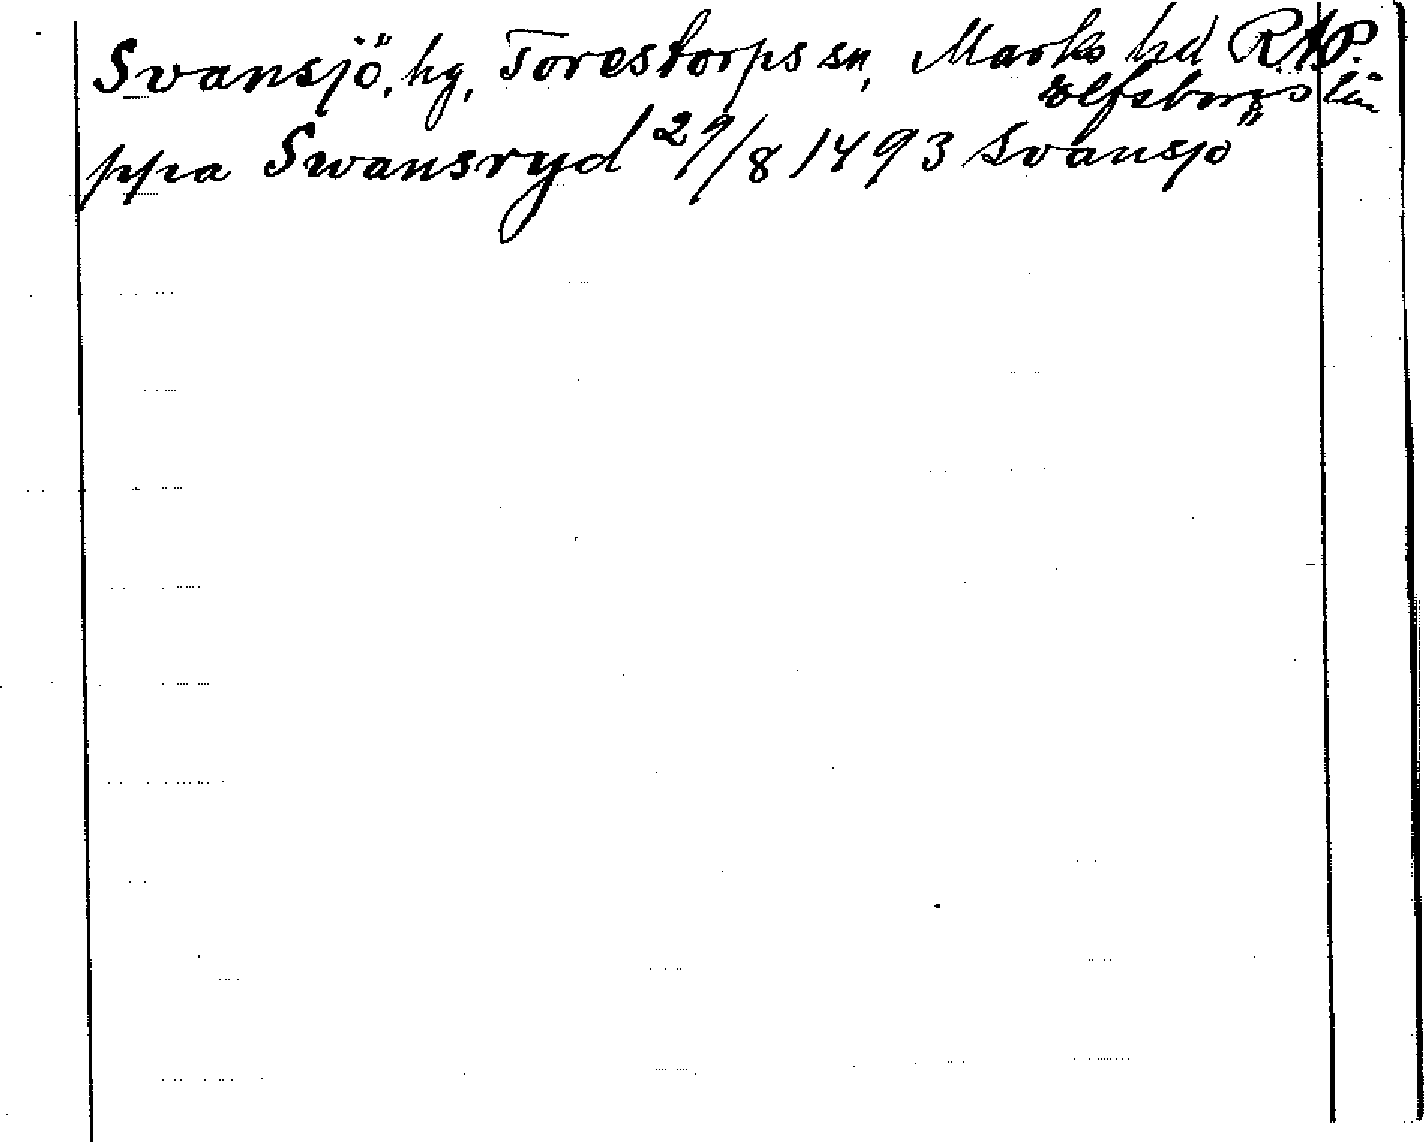 Svansjö, hg, Torestorps sn, Marks hd RAP.
Elfsborgs län
ppa Swansryd 29/8 1493 Svansjö